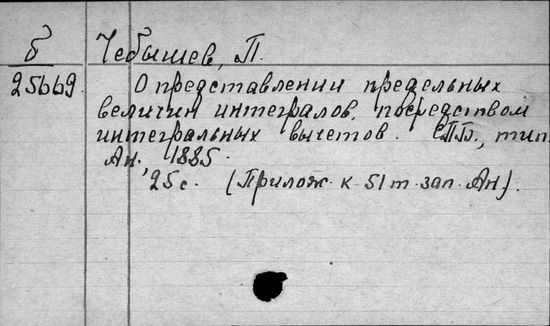 б Чебышев, П.
25669. О представлении предельных
величин интегралов, посредством
интегральных вычетов. СПБ., тип.
Ан. 1885.
25 с. (Прилож. к 51 т. зап. Ан).